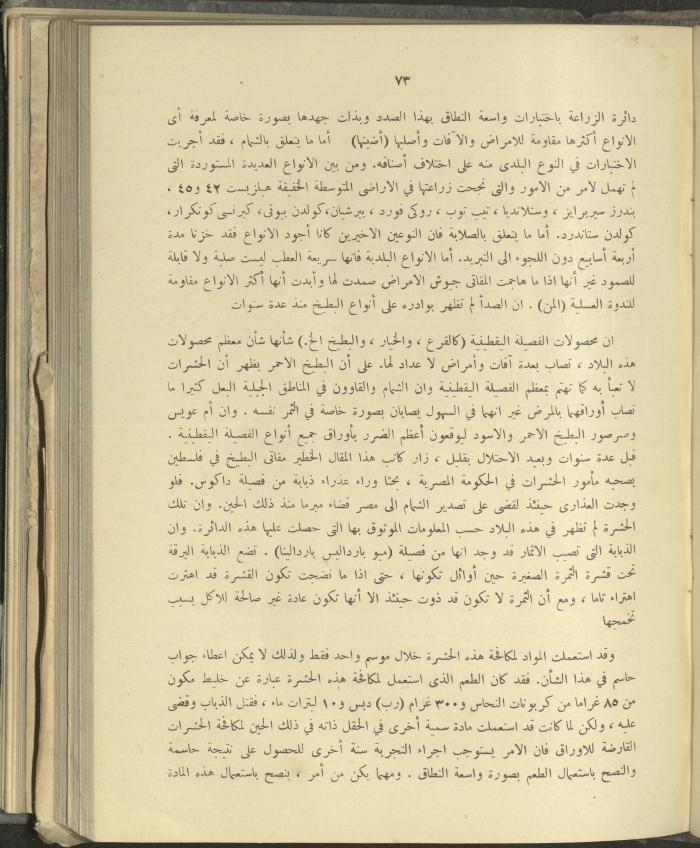 ٧٣
دائرة الزراعة باختبارات واسعة النطاق بهذا الصدد وبذلت جهدها بصورة خاصة لمعرفة أى
الانواع أكثرها مقاومة للامراض والآفات وأصلبها (أضينها) أما ما يتعلق بالشمام ، فقد أجريت
الاختبارات في النوع البلدى منه على اختلاف أصنافه. ومن بين الانواع العديدة المستوردة التى
لم تهمل لامر من الامور والتى نجحت زراعتها في الاراضى المتوسطة الخفيفة هيلزبست ٤٢ و٤٥ ،
بندرز سيربرايز ، وستلانديا ، تيب توب ، روكى فورد ، بيرشيان،كولدن بيوتى، كيرنسى كونكرار،
كولدن ستاندرد. أما ما يتعلق بالصلابة فان النوعين الاخيرين كانا أجود الانواع فقد خزنا مدة
أربعة أسابيع دون اللجوء الى التبريد. أما الانواع البلدية فانها سريعة العطب ليست صلبة ولا قابلة
للصمود غير أنها اذا ما هاجمت المقاثى جيوش الامراض صمدت لها وأبدت أنها أكثر الانواع مقاومة
للندوة العسلية (المن) . ان الصدأ لم تظهر بوادره على أنواع البطيخ منذ عدة سنوات
ان محصولات الفصيلة اليقطينية (كالقرع ، والخيار ، والبطيخ الخ.) شأنها شأن معظم محصولات
هذه البلاد ، تصاب بعدة آفات وأمراض لا عداد لها. على أن البطيخ الاحمر يظهر أن الحشرات
لا تعبأ به كما تهتم بمعظم الفصيلة اليقطينية وان الشمام والقاوون في المناطق الجبلية البعل كثيرا ما
تصاب أوراقهما بالمرض غير انهما في السهول يصابان بصورة خاصة في الثمر نفسه . وان أم عويس
وصرصور البطيخ الاحمر والاسود ليوقعون أعظم الضرر بأوراق جميع أنواع الفصيلة اليقطينية .
قبل عدة سنوات وبعيد الاحتلال بقليل ، زار كاتب هذا المقال الخطير مقاثى البطيخ في فلسطين
يصحبه مأمور الحشرات في الحكومة المصرية ، بحثا وراء عذراء ذبابة من فصيلة داكوس. فلو
وجدت العذارى حينئذ لقضى على تصدير الشمام الى مصر قضاء مبرما منذ ذلك الحين. وان تلك
الحشرة لم تظهر في هذه البلاد حسب المعلومات الموثوق بها التى حصلت عليها هذه الدائرة. وان
الذبابة التى تصيب الاثمار قد وجد انها من فصيلة (ميو بارداليس باردالينا) . تضع الذبابة اليرقة
تحت قشرة الثمرة الصغيرة حين أوائل تكونها ، حتى اذا ما نضجت تكون القشرة قد اهترت
اهتراء تاما ، ومع أن الثمرة لا تكون قد ذوت حينئذ الا أنها تكون عادة غير صالحة للاكل بسبب
تخمجها
وقد استعملت المواد لمكافحة هذه الحشرة خلال موسم واحد فقط ولذلك لا يمكن اعطاء جواب
حاسم في هذا الشأن. فقد كان الطعم الذى استعمل لمكافحة هذه الحشرة عبارة عن خليط مكون
من ٨٥ غراما من كربونات النحاس و٣٠٠ غرام (رب) دبس و١٠ ليترات ماء ، فقتل الذباب وقضى
عليه ، ولكن لما كانت قد استعملت مادة سمية أخرى في الحقل ذاته في ذلك الحين لمكافحة الحشرات
القارضة للاوراق فان الامر يستوجب اجراء التجربة سنة أخرى للحصول على نتيجة حاسمة
والنصح باستعمال الطعم بصورة واسعة النطاق . ومهما يكن من أمر ، ينصح باستعمال هذه المادة